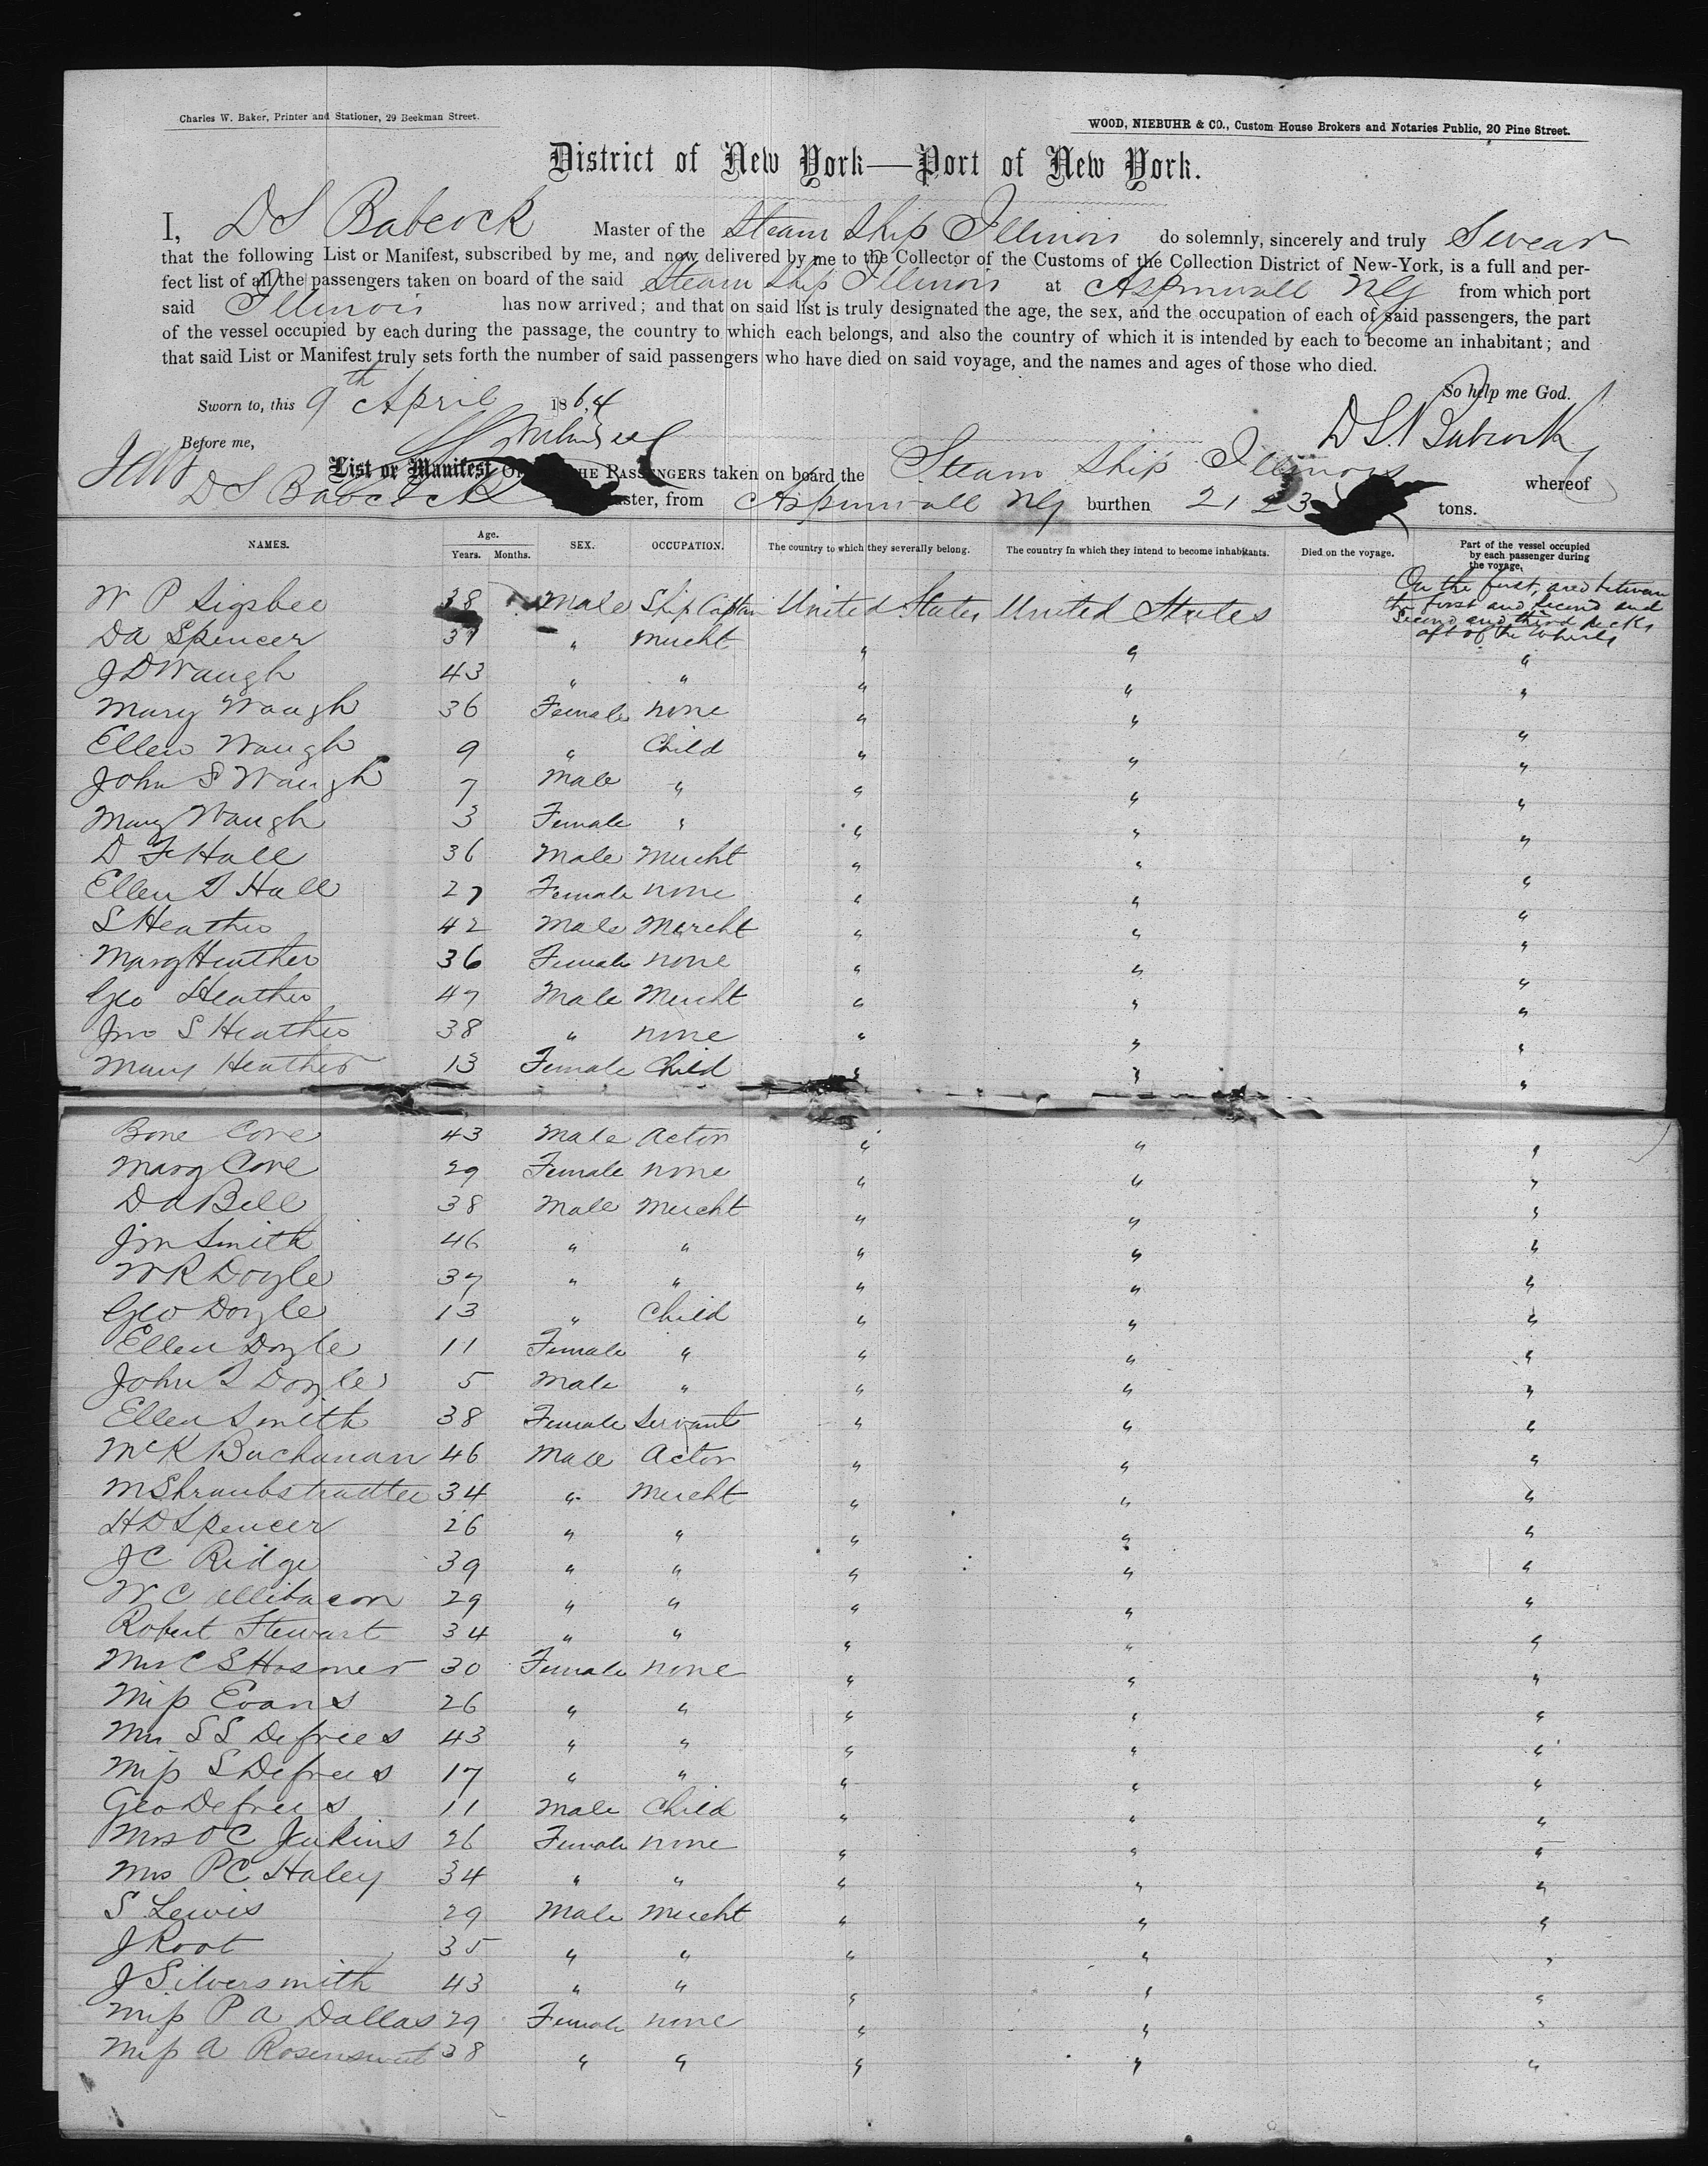 Charles W. Baker, Printer and Stationer, 29 Beekman Street.
WOOD, NIEBUHR & CO., Custom House Brokers and Notaries Public, 20 Pine Street.
District of New York—Port of New York.
I, D S Babcock Master of the Steam Ship Illinois do solemnly, sincerely and truly Swear
that the following List or Manifest, subscribed by me, and now delivered by me to the Collector of the Customs of the Collection District of New-York, is a full and per-
fect list of all the passengers taken on board of the said Steam Ship Illinois at Aspinwall NG from which port
said Illinois has now arrived; and that on said list is truly designated the age, the sex, and the occupation of each of said passengers, the part
of the vessel occupied by each during the passage, the country to which each belongs, and also the country of which it is intended by each to become an inhabitant; and
that said List or Manifest truly sets forth the number of said passengers who have died on said voyage, and the names and ages of those who died.
So help me God.
Sworn to, this 9th April 1864
D S Babcock
Before me,
List or Manifest OF THE PASSENGERS taken on board the Steam Ship Illinois whereof
D S Babcock Master, from Aspinwall NG burthen 2123 tons.
NAMES. Age. Years. Months. SEX. OCCUPATION. The country to which they severally belong. The country in which they intend to become inhabitants. Died on the voyage. Part of the vessel occupied by each passenger during the voyage.
W P Sigsbee 38 Male Ship Captain United States United States On the first, and between the first and second and second and third decks aft of the wheels
D A Spencer 37 " Mercht " " "
J D Waugh 43 " " " " "
Mary Waugh 36 Female none " " "
Ellen Waugh 9 " Child " " "
John S Waugh 7 Male " " " "
Mary Waugh 3 Female " " " "
D F Hall 36 Male Mercht " " "
Ellen S Hall 27 Female none " " "
S Heather 42 Male Mercht " " "
Mary Heather 36 Female none " " "
Geo Heather 47 Male Mercht " " "
Jno S Heather 38 " none " " "
Mary Heather 13 Female Child " " "
Bone Cove 43 Male Actor " " "
Mary Cove 29 Female none " " "
D A Bell 38 Male Mercht " " "
Jm Smith 46 " " " " "
W R Doyle 37 " " " " "
Geo Doyle 13 " Child " " "
Ellen Doyle 11 Female " " " "
John S Doyle 5 Male " " " "
Ellen Smith 38 Female Servant " " "
McK Buchanan 46 Male Actor " " "
M Shraubstradter 34 " Mercht " " "
H D Spencer 26 " " " " "
J C Ridge 39 " " " " "
W C 29 " " " " "
Robert Stewart 34 " " " " "
Mrs C S Hosmer 30 Female none " " "
Miss Evans 26 " " " " "
Mrs S S Defrees 43 " " " " "
Miss S Defrees 17 " " " " "
Geo Defrees 11 Male Child " " "
Mrs O C Jenkins 26 Female none " " "
Mrs P C Haley 34 " " " " "
S Lewis 29 Male Mercht " " "
J Root 35 " " " " "
J Silversmith 43 " " " " "
Miss P A Dallas 29 Female none " " "
Miss A 38 " " " " "